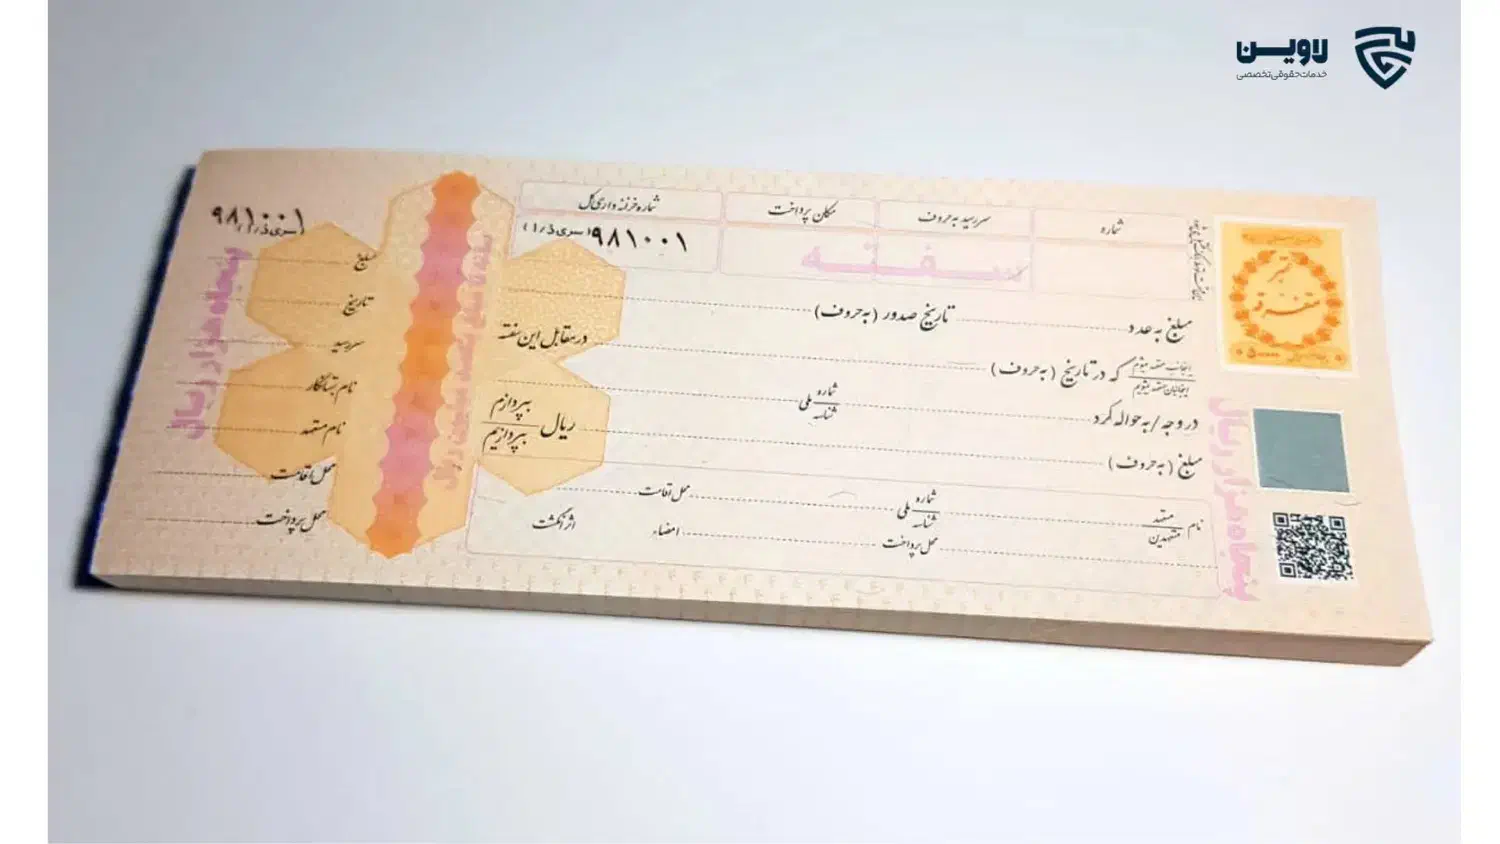 لاوین
خدمات حقوقی تخصصی
شماره
سررسید به حروف
مکان پرداخت
شماره خزانه‌داری کل
۹۸۱۰۰۱ (سری ذ/۱)
سفته
مبلغ به عدد
تاریخ صدور (به حروف)
در مقابل این سفته
اینجانب متعهد میشوم
اینجانبان متعهد میشویم
که در تاریخ (به حروف)
در وجه / به حواله کرد
شماره ملی
شناسه
مبلغ (به حروف)
ریال
بپردازم
بپردازیم
نام
متعهد
متعهدین
شماره ملی
شناسه
محل اقامت
محل پرداخت
امضاء
اثر انگشت
سفته
پنجاه هزار ریال
۹۸۱۰۰۱
(سری ذ/۱)
مبلغ
تاریخ
سررسید
نام بستانکار
نام متعهد
محل اقامت
محل پرداخت
پنجاه هزار ریال